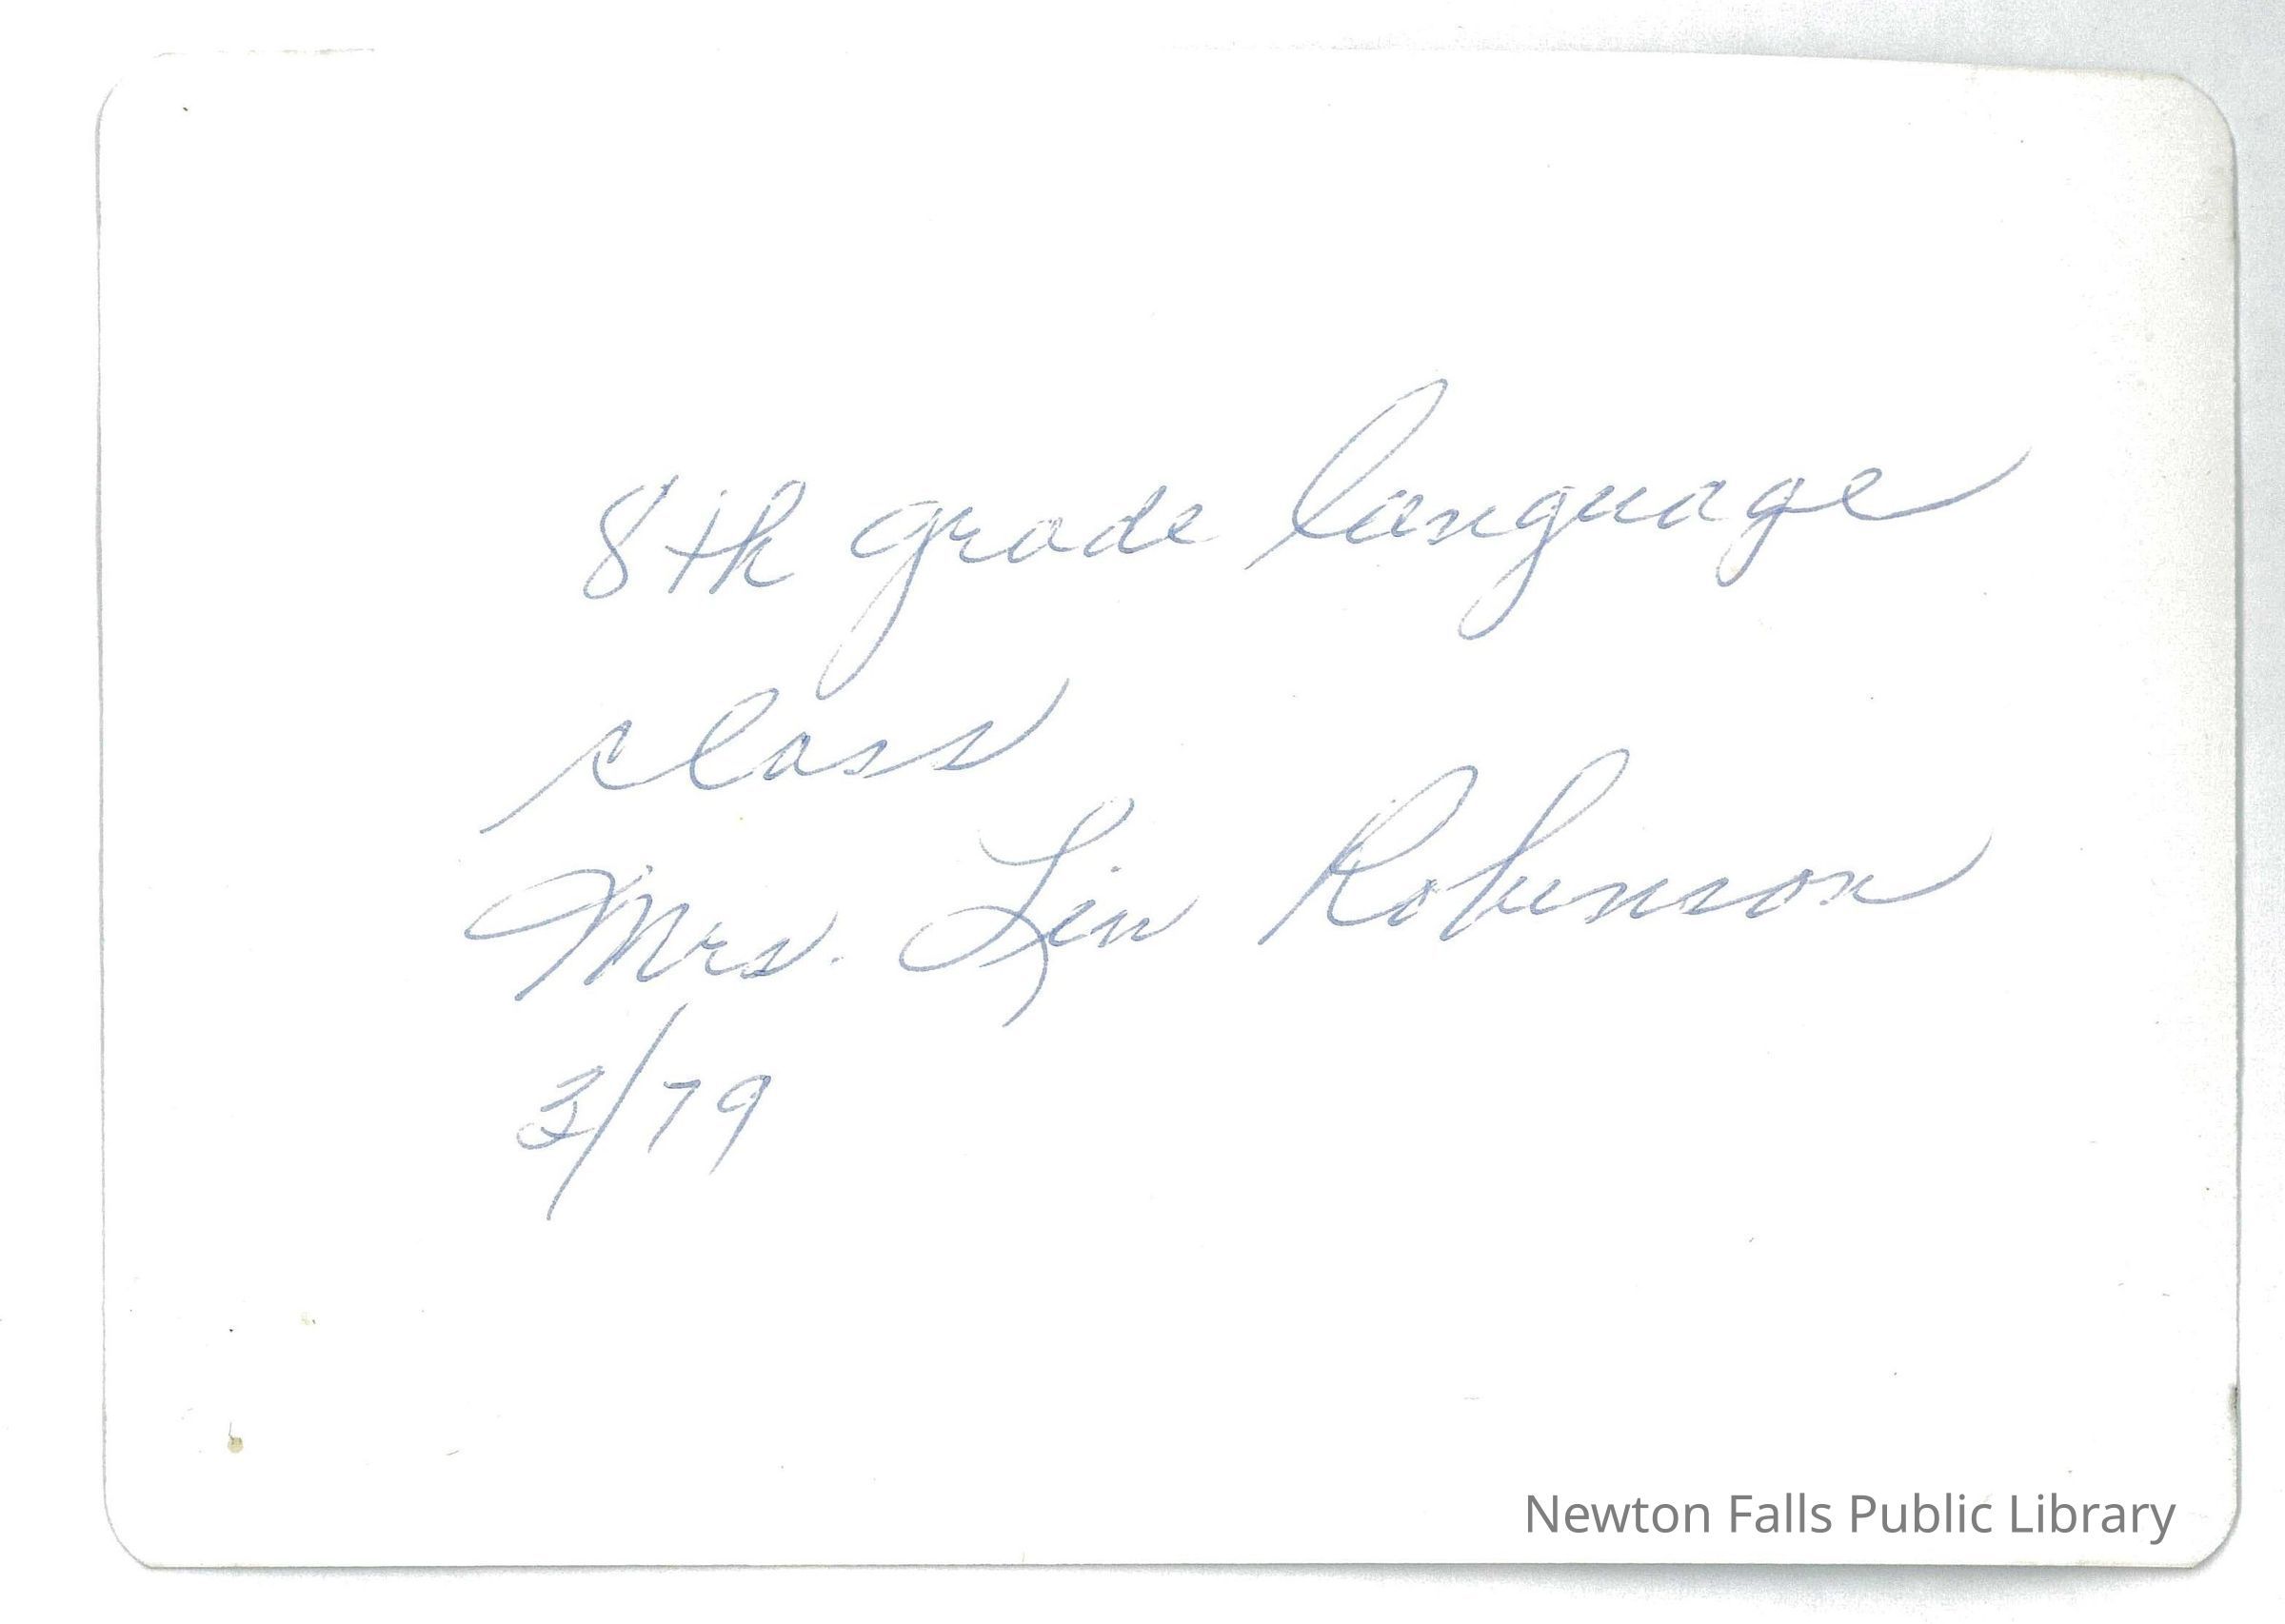 8th grade language
class
Mrs. Lin Robinson
3/79
Newton Falls Public Library